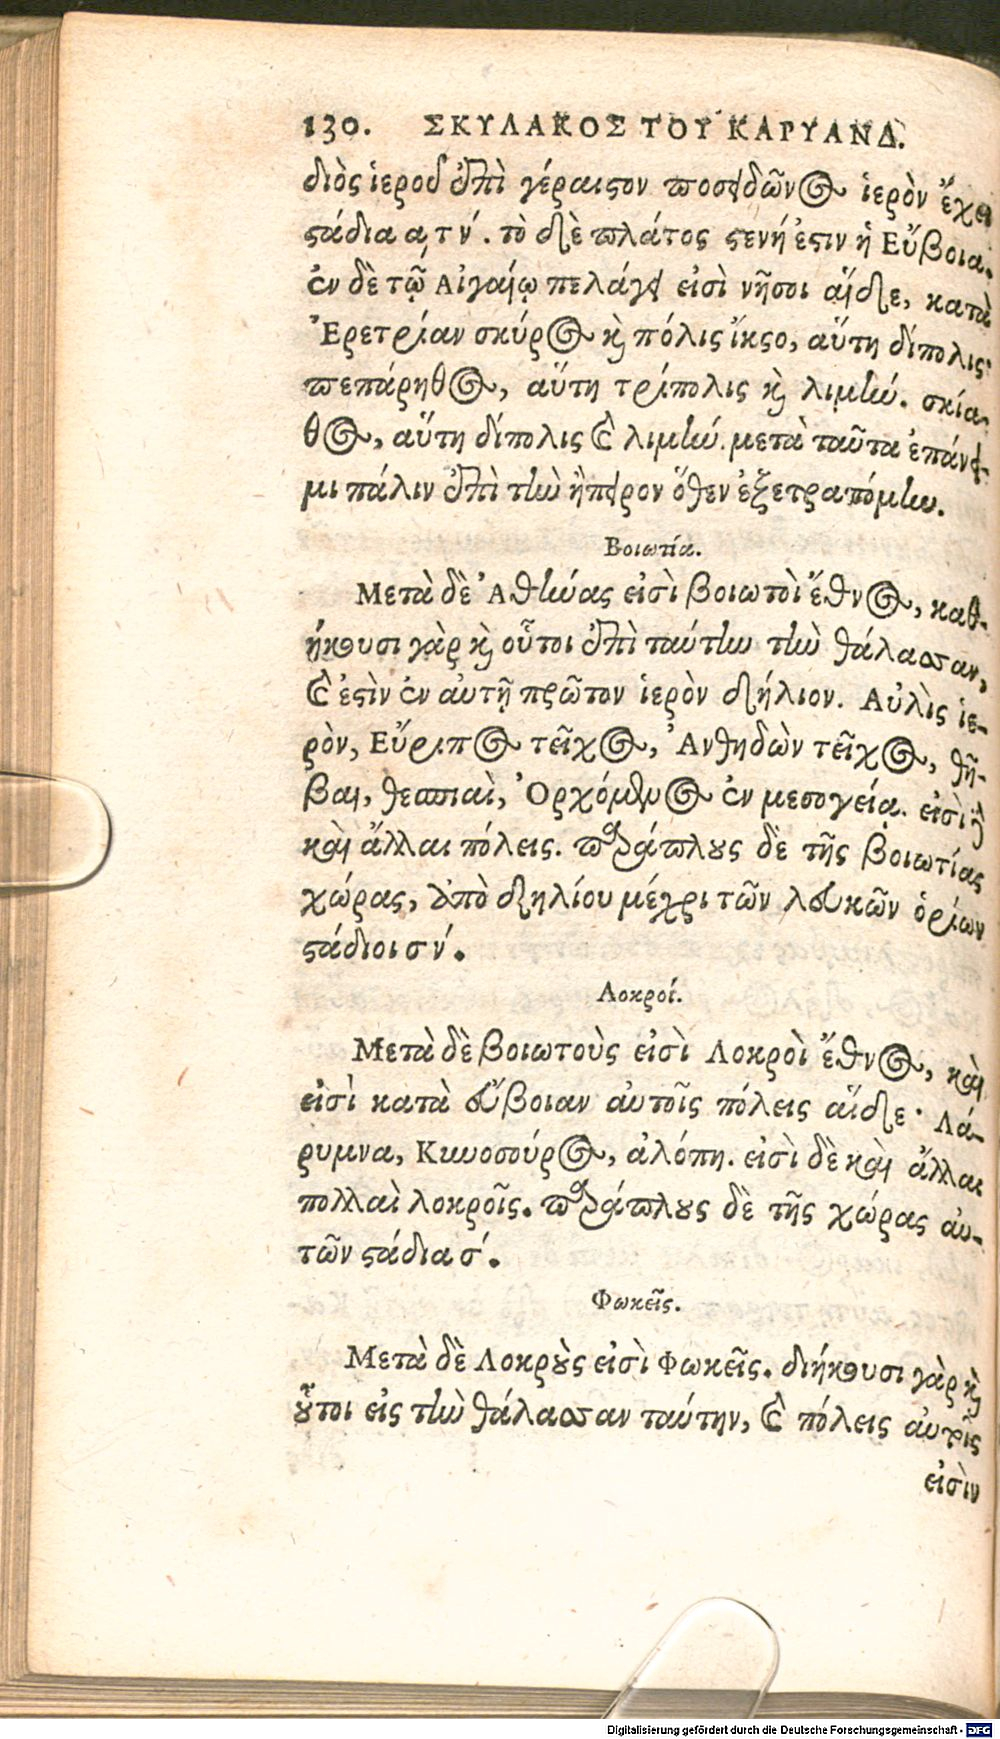 130. ΣΚΥΛΑΚΟΣ ΤΟΥ ΚΑΡΥΑΝΔ.
διὸς ἱεροῦ ἐπὶ γέραιστον ποσειδῶνος ἱερὸν ἔχει
στάδια α τ ν΄. τὸ δὲ πλάτος στενή ἐστιν ἡ Εὔβοια.
ἐν δὲ τῷ Αἰγαίῳ πελάγει εἰσὶ νῆσοι αἵδε, κατὰ
Ἐρετρίαν σκύρος καὶ πόλις ἴκσο, αὕτη δίπολις·
πεπάρηθος, αὕτη τρίπολις καὶ λιμήν. σκία-
θος, αὕτη δίπολις καὶ λιμήν. μετὰ ταῦτα ἐπάνει-
μι πάλιν ἐπὶ τὴν ἤπειρον ὅθεν ἐξετραπόμην.
Βοιωτία.
Μετὰ δὲ Ἀθήνας εἰσὶ βοιωτοὶ ἔθνος, καθ-
ήκουσι γὰρ καὶ οὗτοι ἐπὶ ταύτην τὴν θάλασσαν,
καὶ ἐστὶν ἐν αὐτῇ πρῶτον ἱερὸν δήλιον. Αὐλὶς ἱε-
ρὸν, Εὔριπος τεῖχος, Ἀνθηδὼν τεῖχος, θῆ-
βαι, θεσπιαὶ, Ὀρχόμενος ἐν μεσογείᾳ. εἰσὶ δὲ
καὶ ἄλλαι πόλεις. παράπλους δὲ τῆς βοιωτίας
χώρας, ἀπὸ δηλίου μέχρι τῶν λευκῶν ὁρίων
στάδιοι σ ν΄.
Λοκροί.
Μετὰ δὲ βοιωτοὺς εἰσὶ Λοκροὶ ἔθνος, καὶ
εἰσὶ κατὰ εὔβοιαν αὐτοῖς πόλεις αἵδε· Λά-
ρυμνα, Κυνοσούρος, ἀλόπη. εἰσὶ δὲ καὶ ἄλλαι
πολλαὶ λοκροῖς. παράπλους δὲ τῆς χώρας αὐ-
τῶν στάδια σ΄.
Φωκεῖς.
Μετὰ δὲ Λοκροὺς εἰσὶ Φωκεῖς. διήκουσι γὰρ καὶ
οὗτοι εἰς τὴν θάλασσαν ταύτην, καὶ πόλεις αὐτοῖς
εἰσὶν
Digitalisierung gefördert durch die Deutsche Forschungsgemeinschaft - DFG